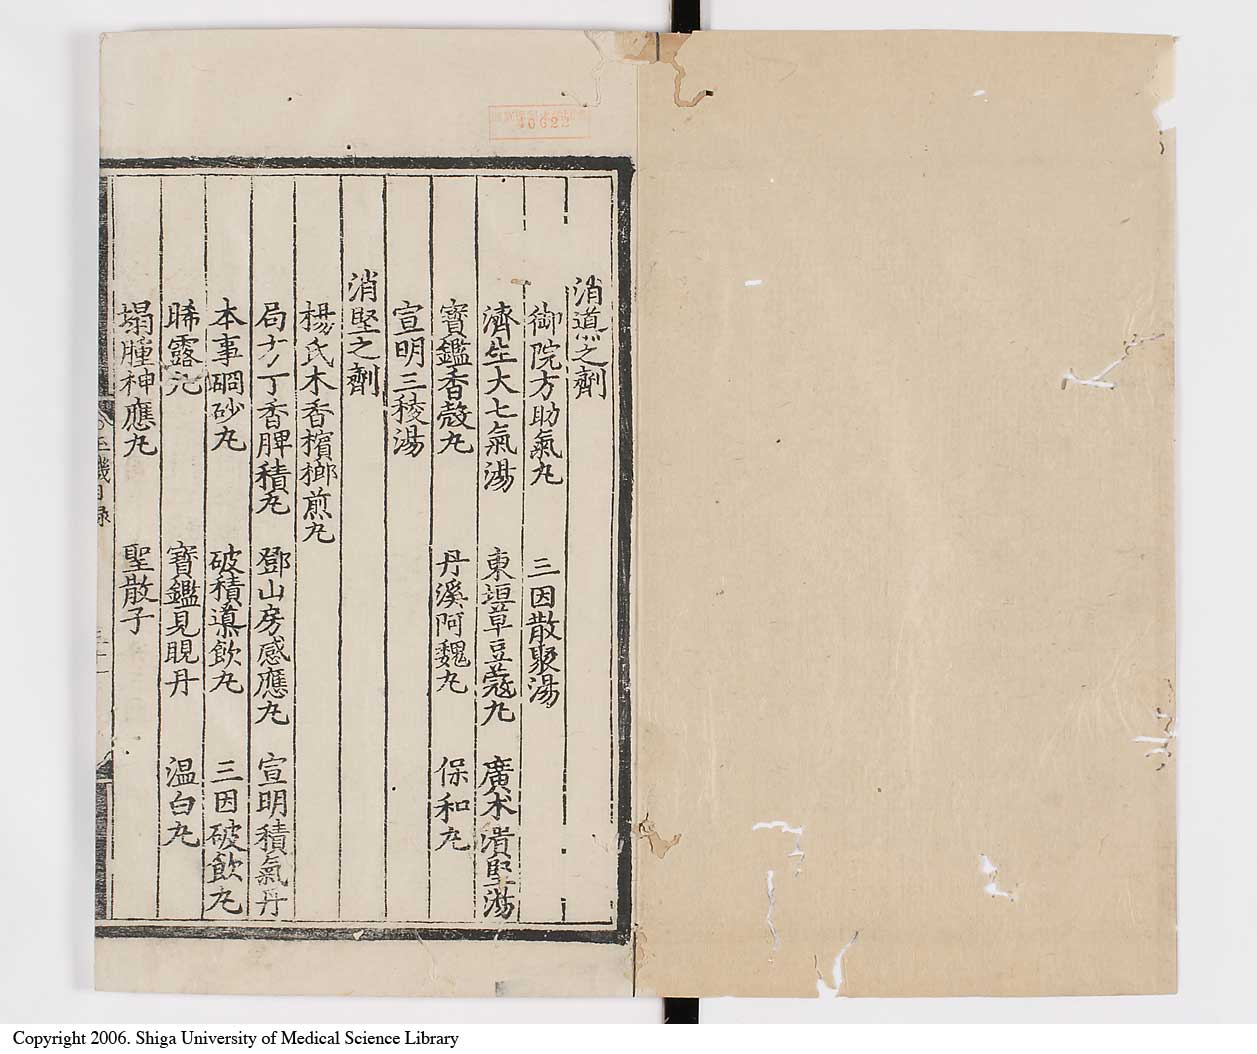 消導之劑
御院方助氣丸 三因散聚湯
濟生大七氣湯 東垣草豆蔻丸 廣朮潰堅湯
寶鑑香殼丸 丹溪阿魏丸 保和丸
宣明三稜湯
消堅之劑
楊氏木香檳榔煎丸
局方丁香脾積丸 鄧山房感應丸 宣明積氣丹
本事硇砂丸 破積導飲丸 三因破飲丸
晞露丸 寶鑑見晛丹 温白丸
塌腫神應丸 聖散子
玉機目录
40622
Copyright 2006. Shiga University of Medical Science Library